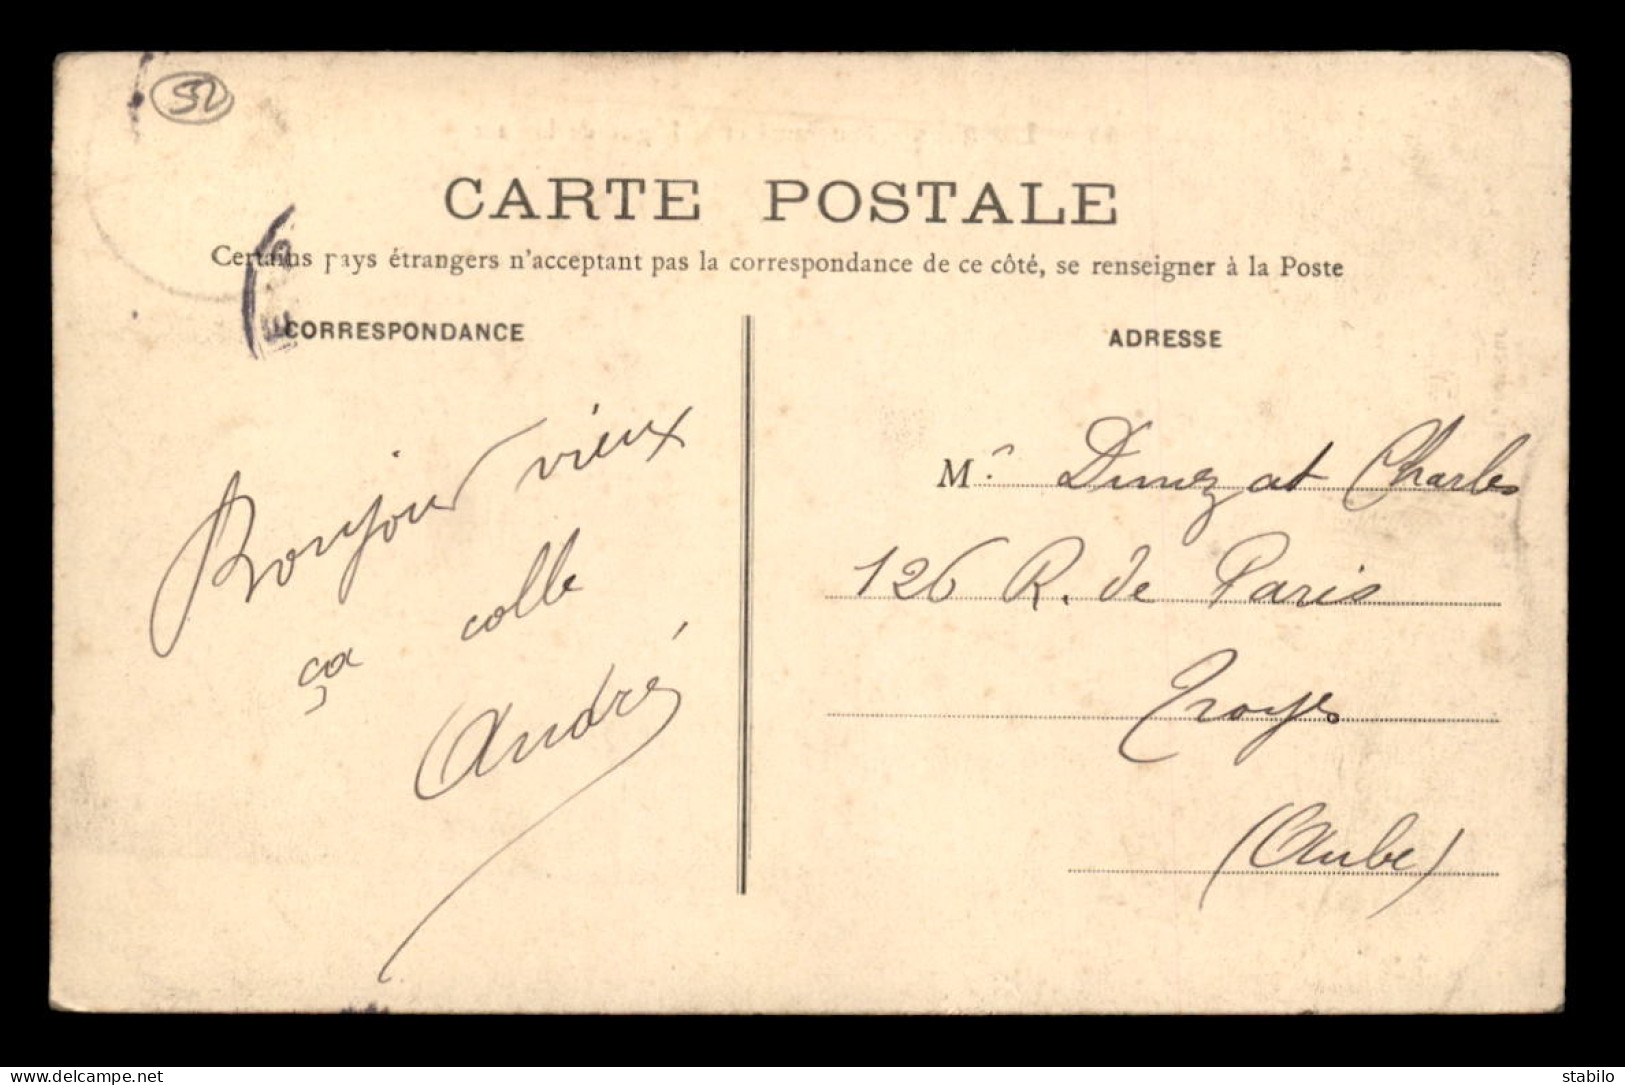 52
CARTE POSTALE
Certains pays étrangers n'acceptant pas la correspondance de ce côté, se renseigner à la Poste
CORRESPONDANCE
ADRESSE
Bonjour vieux
ça colle
André
Mr Dunezat Charles
126 R. de Paris
Troyes
(Aube)
www.delcampe.net
stabilo